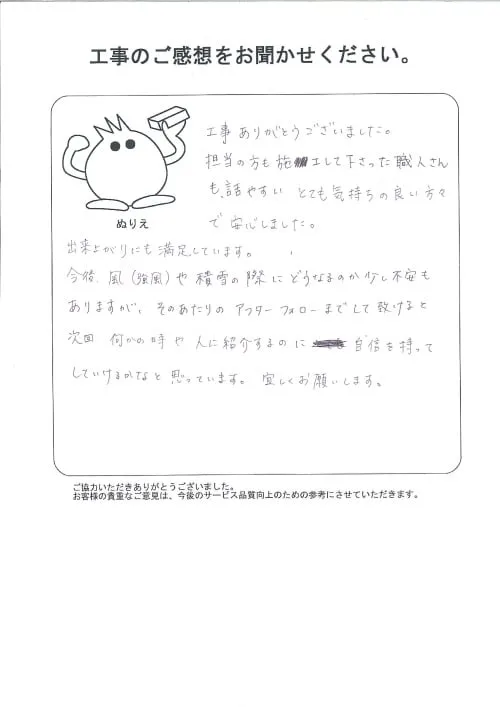 工事のご感想をお聞かせください。
ぬりえ
工事ありがとうございました。
担当の方も施工して下さった職人さん
も、話やすい とても気持ちの良い方々
で安心しました。
出来上がりにも満足しています。
今後、風(強風)や積雪の際にどうなるのか少し不安も
ありますが、そのあたりのアフターフォローまでして致けると
次回 何かの時や人に紹介するのに 自信を持って
していけるかなと思っています。 宜しくお願いします。
ご協力いただきありがとうございました。
お客様の貴重なご意見は、今後のサービス品質向上のための参考にさせていただきます。